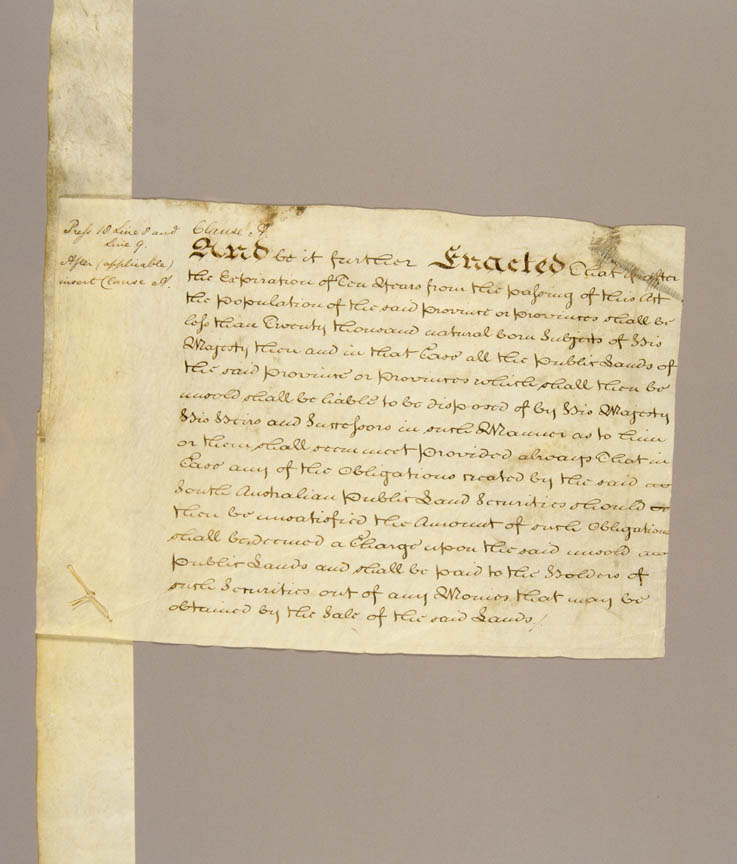 Press 18 Line 8 and
Line 9.
After (applicable)
insert Clause A.
Clause A.
And be it further Enacted That if after
the Expiration of Ten Years from the passing of this Act
the population of the said Province or Provinces shall be
less than Twenty thousand natural born Subjects of His
Majesty then and in that Case all the Public Lands of
the said Province or Provinces which shall then be
unsold shall be liable to be disposed of by His Majesty
His Heirs and Successors in such Manner as to him
or them shall seem meet Provided always That in
Case any of the Obligations created by the said
South Australian Public Land Securities should
then be unsatisfied the Amount of such Obligations
shall be deemed a Charge upon the said unsold
Public Lands and shall be paid to the Holders of
such Securities out of any Monies that may be
obtained by the Sale of the said Lands./